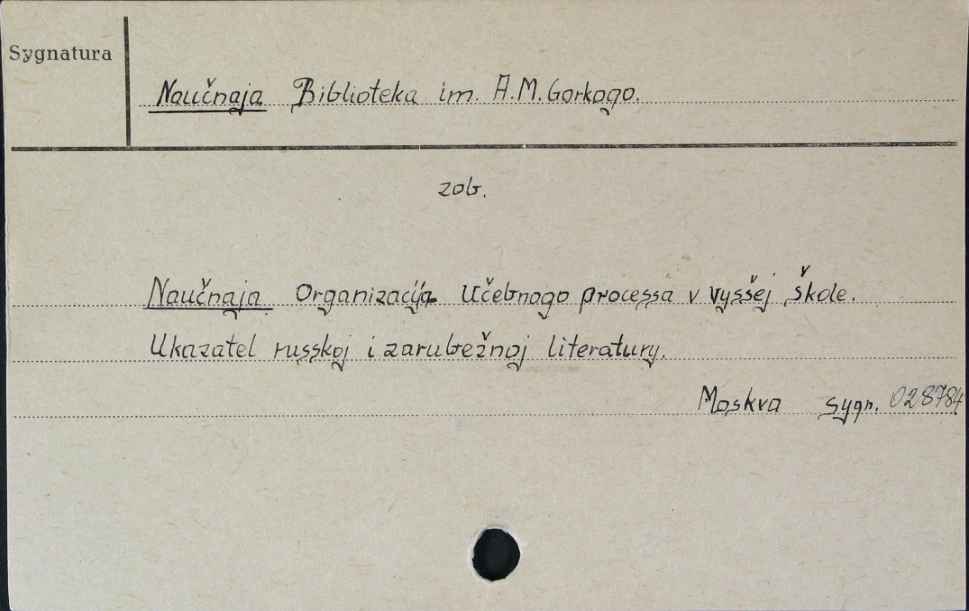 Sygnatura
Naučnaja Biblioteka im. A.M. Gorkogo.
zob.
Naučnaja Organizacija Učebnogo processa v vysšej škole.
Ukazatel russkoj i zarubežnoj literatury.
Moskva sygn. 028784